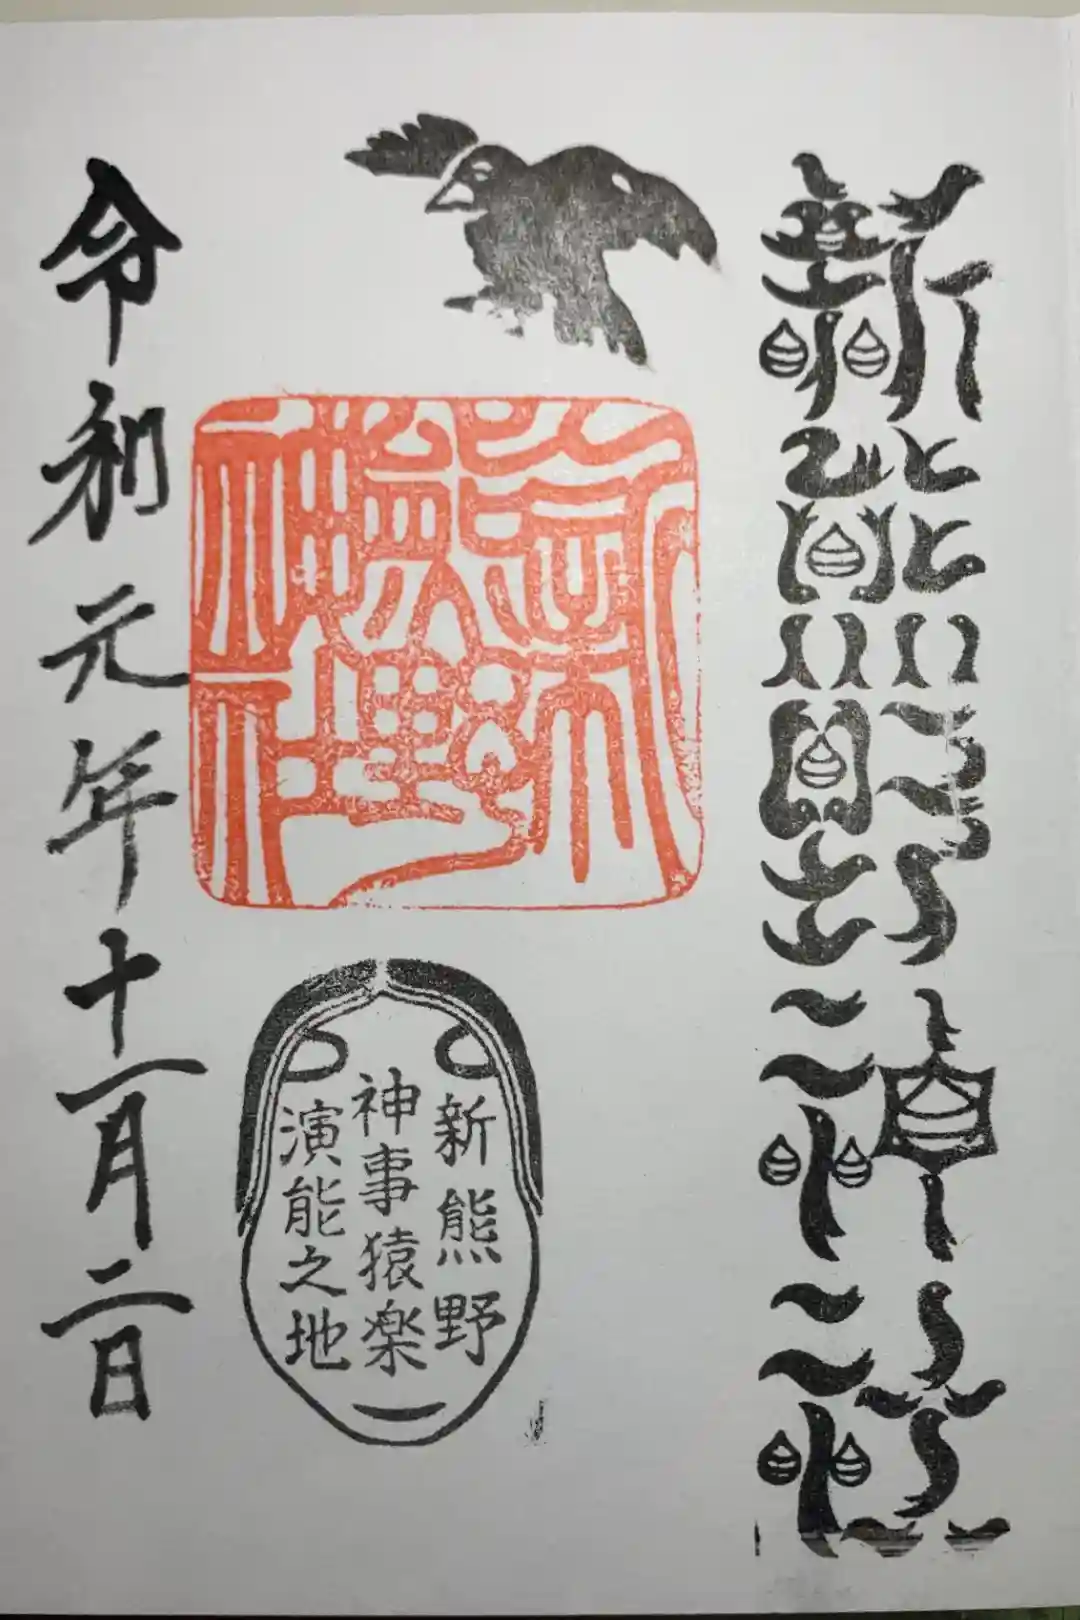 新熊野神社
新熊野神社
新熊野
神事猿楽
演能之地
令和元年十一月二日